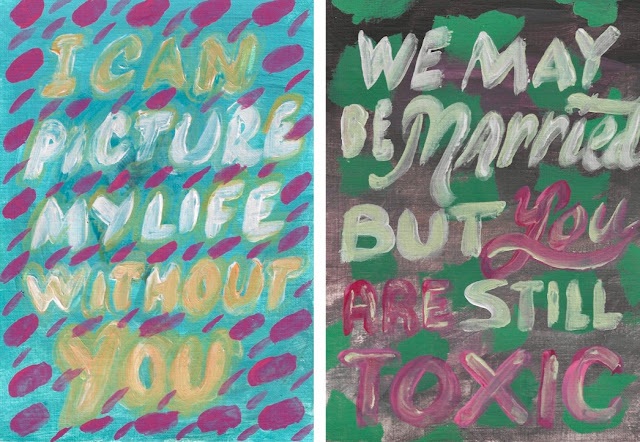 I CAN
PiCTURE
MY LIFE
WITHOUT
YOU
WE MAY
BE Married
BUT You
ARE STILL
TOXIC